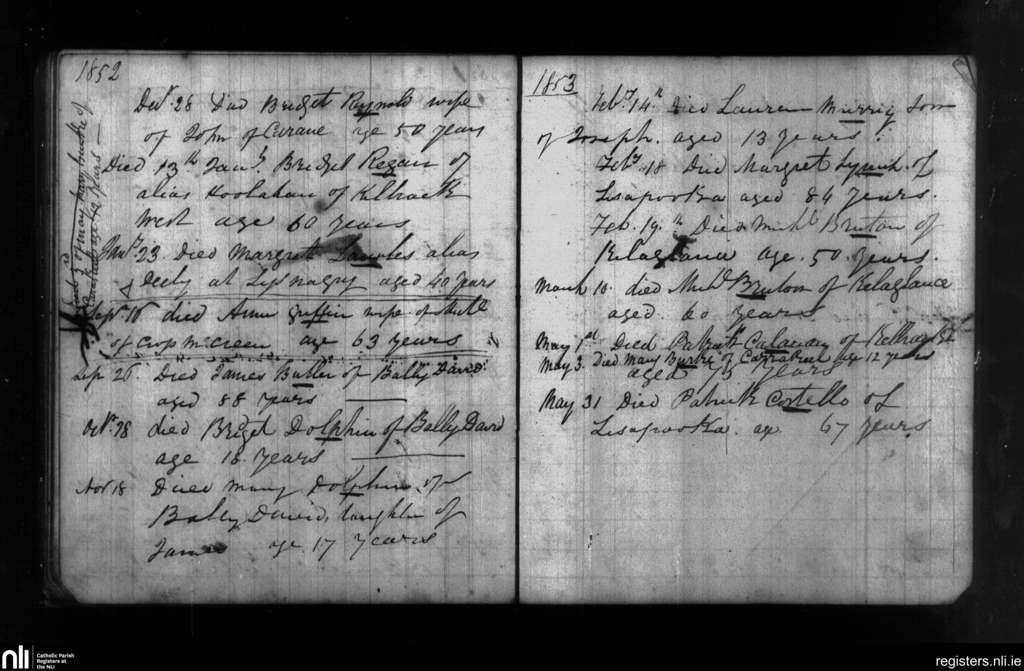 1852
Decr. 28 Died Bridget Rynold wife
of John of Carane age 50 years
Died 13th Jany Bridget Regan of
alias Hoolahan of
West age 60 years
Jany. 23 Died Margret Lawles alias
Deely at aged 40 years
Sept 10 died Ann Griffin wife of
of age 63 years
Sep 26 Died James Butler of Bally David
aged 88 years
Octr. 28 died Briget Dolphin of Bally David
age 18 years
Nov 18 Died Mary Dolphin of
Bally David, daughter of
James age 17 years
1853
Feby. 14th Died Lauren Murry son
of Joseph. aged 13 years
Feby 18 Died Margret Lynch of
Lisapooka aged 84 years.
Feb. 19th Died Michl Bruton of
Kilaglana age. 50 years.
March 10. died Michl Bruton of Kelaglance
aged 60 years
May 1st Died Patrick Calanan of
May 3. Died Mary Burke of age 12 years
aged 75 years
May 31 Died Patrick Costello of
Lisapooka. age 67 years
nli Catholic Parish
Registers at
the NLI
registers.nli.ie